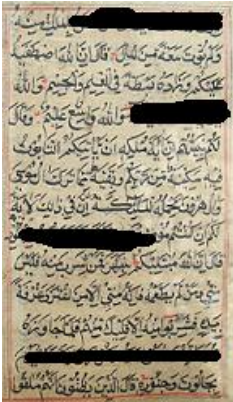 بالملك منه
ولم يؤت سعة من المال قال ان الله اصطفيه
عليكم وزاده بسطة في العلم والجسم والله
والله واسع عليم وقال
لهم نبيهم ان اية ملكه ان ياتيكم التابوت
فيه سكينة من ربكم وبقية مما ترك ال موسى
وال هرون تحمله الملئكة ان في ذلك لاية
لكم ان كنتم
قال ان الله مبتليكم بنهر فمن شرب منه فليس
مني ومن لم يطعمه فانه مني الا من اغترف غرفة
بيده فشربوا منه الا قليلا منهم فلما جاوزه
بجالوت وجنوده قال الذين يظنون انهم ملاقوا